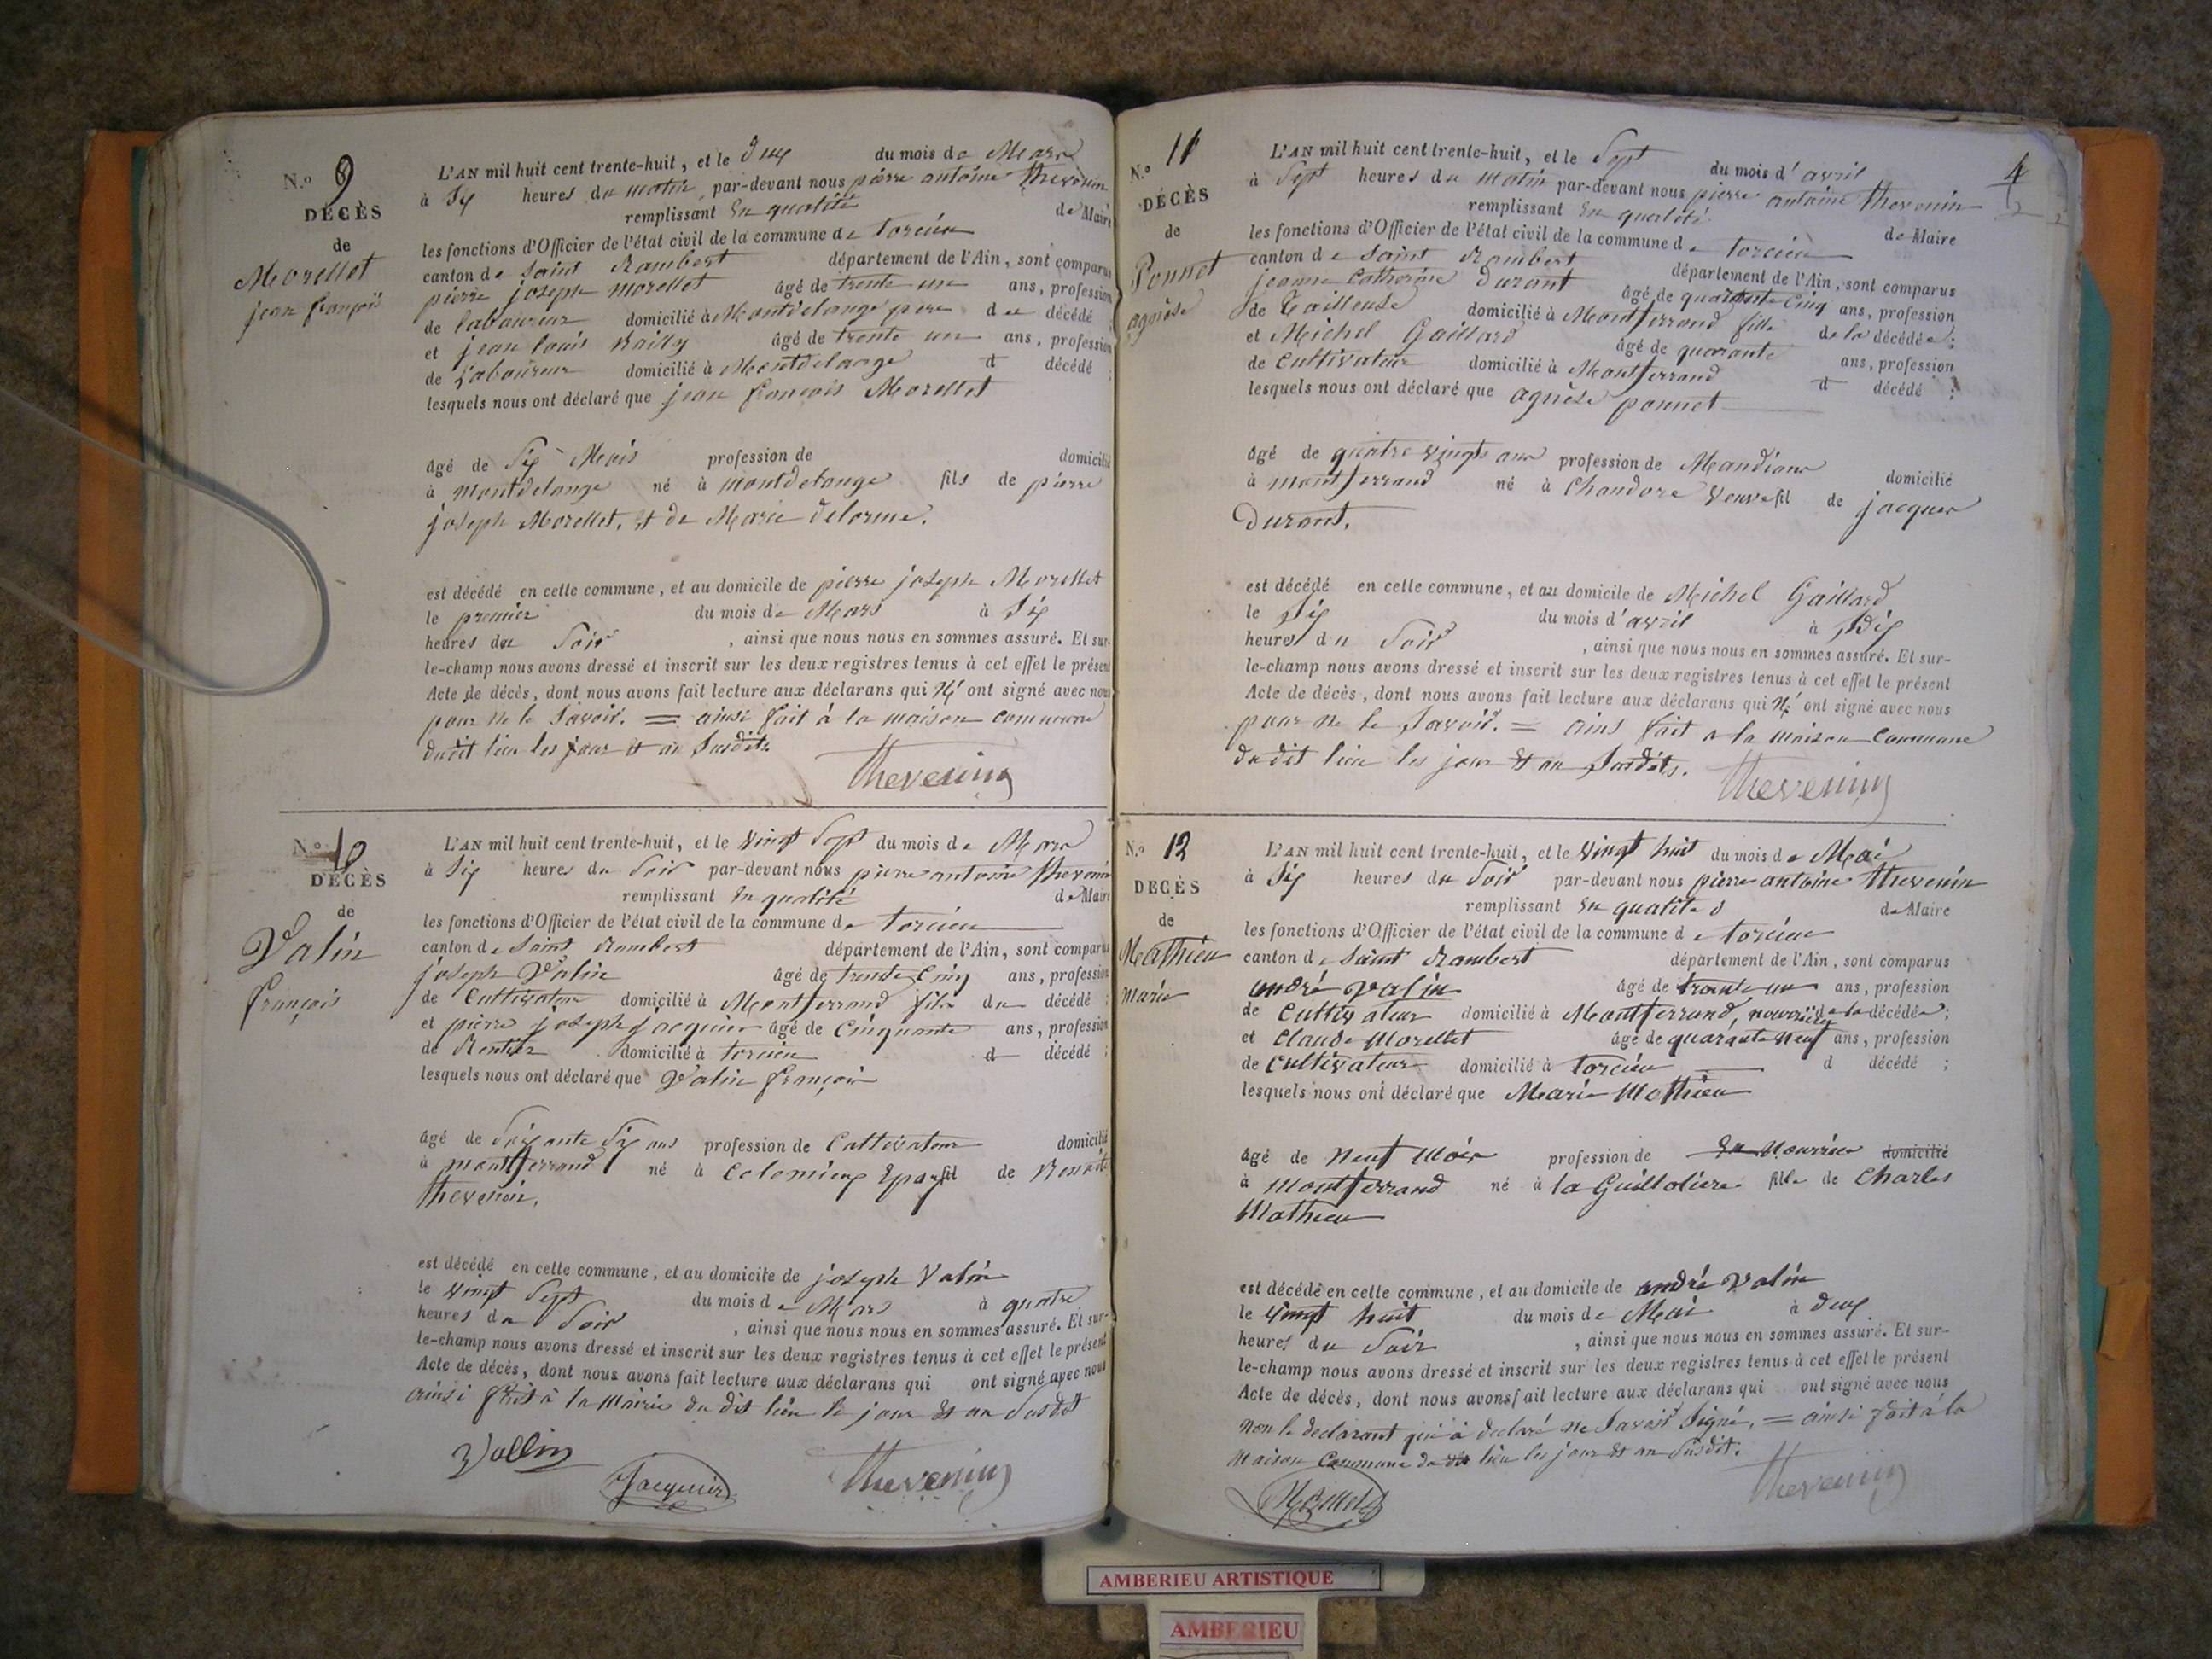 N.o 9
DÉCÈS
de
Morellet
jean françois
L'AN mil huit cent trente-huit, et le deux du mois de Mars
à Six heures du matin par-devant nous pierre antoine thevenin
remplissant En qualité de Maire
les fonctions d'Officier de l'état civil de la commune de torcieu
canton de Saint Rambert département de l'Ain, sont comparus
pierre joseph morellet âgé de trente un ans, profession
de laboureur domicilié à Montdelange pere du décédé ;
et jean louis Railly âgé de trente un ans, profession
de Laboureur domicilié à Montdelange d décédé ;
lesquels nous ont déclaré que jean françois Morellet
âgé de Six Mois profession de domicilié
à montdelange né à montdelange fils de pierre
joseph Morellet, et de Marie delorme.
est décédé en cette commune, et au domicile de pierre joseph Morellet
le premier du mois de Mars à Six
heures du Soir , ainsi que nous nous en sommes assuré. Et sur-
le-champ nous avons dressé et inscrit sur les deux registres tenus à cet effet le présent
Acte de décès, dont nous avons fait lecture aux déclarans qui N' ont signé avec nous
pour ne le Savoir. = ainsi fait à la maison commune
dudit lieu les jour et an Susdits.
thevenin
N.o 10
DÉCÈS
de
Valin
françois
L'AN mil huit cent trente-huit, et le vingt Sept du mois de Mars
à Six heures du Soir par-devant nous pierre antoine thevenin
remplissant En qualité de Maire
les fonctions d'Officier de l'état civil de la commune de torcieu
canton de Saint Rambert département de l'Ain, sont comparus
joseph Valin âgé de trente Cinq ans, profession
de Cultivateur domicilié à Montferrand fils du décédé ;
et pierre joseph jacquier âgé de Cinquante ans, profession
de Rentier domicilié à torcieu d décédé ;
lesquels nous ont déclaré que Valin françois
âgé de Soixante Six ans profession de Cultivateur domicilié
à montferrand né à Colomieux Epoux fil de Benoite
thevenin.
est décédé en cette commune, et au domicile de joseph Valin
le vingt Sept du mois de Mars à quatre
heures du Soir , ainsi que nous nous en sommes assuré. Et sur-
le-champ nous avons dressé et inscrit sur les deux registres tenus à cet effet le présent
Acte de décès, dont nous avons fait lecture aux déclarans qui ont signé avec nous
ainsi fait à la Mairie du dit lieu le jour et an Susdit
Vallin
Jacquier
thevenin
4
N.o 11
DÉCÈS
de
Ponnet
agnèse
L'AN mil huit cent trente-huit, et le Sept du mois d'avril
à Sept heures du Matin par-devant nous pierre antoine thevenin
remplissant En qualité de Maire
les fonctions d'Officier de l'état civil de la commune de torcieu
canton de Saint Rambert département de l'Ain, sont comparus
jeanne Catherine Durant âgé de quarante Cinq ans, profession
de Tailleuse domicilié à Montferrand fille de la décédée ;
et Michel Gaillard âgé de quarante ans, profession
de Cultivateur domicilié à Montferrand d décédé ;
lesquels nous ont déclaré que agnèse ponnet
âgé de quatre vingts ans profession de Mandiane domicilié
à montferrand né à Chandore Veuve fil de jacques
Durant.
est décédé en cette commune, et au domicile de Michel Gaillard
le Six du mois d'avril à Dix
heures du Soir , ainsi que nous nous en sommes assuré. Et sur-
le-champ nous avons dressé et inscrit sur les deux registres tenus à cet effet le présent
Acte de décès, dont nous avons fait lecture aux déclarans qui N' ont signé avec nous
pour ne le Savoir. = ains fait a la maison Commune
du dit lieu les jour et an Susdits.
thevenin
N.o 12
DÉCÈS
de
Mathieu
Marie
L'AN mil huit cent trente-huit, et le vingt huit du mois de Mai
à Six heures du Soir par-devant nous pierre antoine thevenin
remplissant En qualité d de Maire
les fonctions d'Officier de l'état civil de la commune de torcieu
canton de Saint Rambert département de l'Ain, sont comparus
andré valin âgé de trante un ans, profession
de Cultivateur domicilié à Montferrand, nourricier de la décédée ;
et Claude Morellet âgé de quarante Neuf ans, profession
de Cultivateur domicilié à torcieu d décédé ;
lesquels nous ont déclaré que Marie Mathieu
âgé de Neuf Mois profession de En Nourrice domicilié
à Montferrand né à la Guillotiere fille de Charles
Mathieu
est décédé en cette commune, et au domicile de andré Valin
le Vingt huit du mois de Mai à deux
heures du Soir , ainsi que nous nous en sommes assuré. Et sur-
le-champ nous avons dressé et inscrit sur les deux registres tenus à cet effet le présent
Acte de décès, dont nous avons fait lecture aux déclarans qui ont signé avec nous
Non le declarant qui à declaré ne Savoir Signé, = ainsi fait à la
Maison Commune du dit lieu les jour et an Susdit.
thevenin
AMBERIEU ARTISTIQUE
AMBERIEU